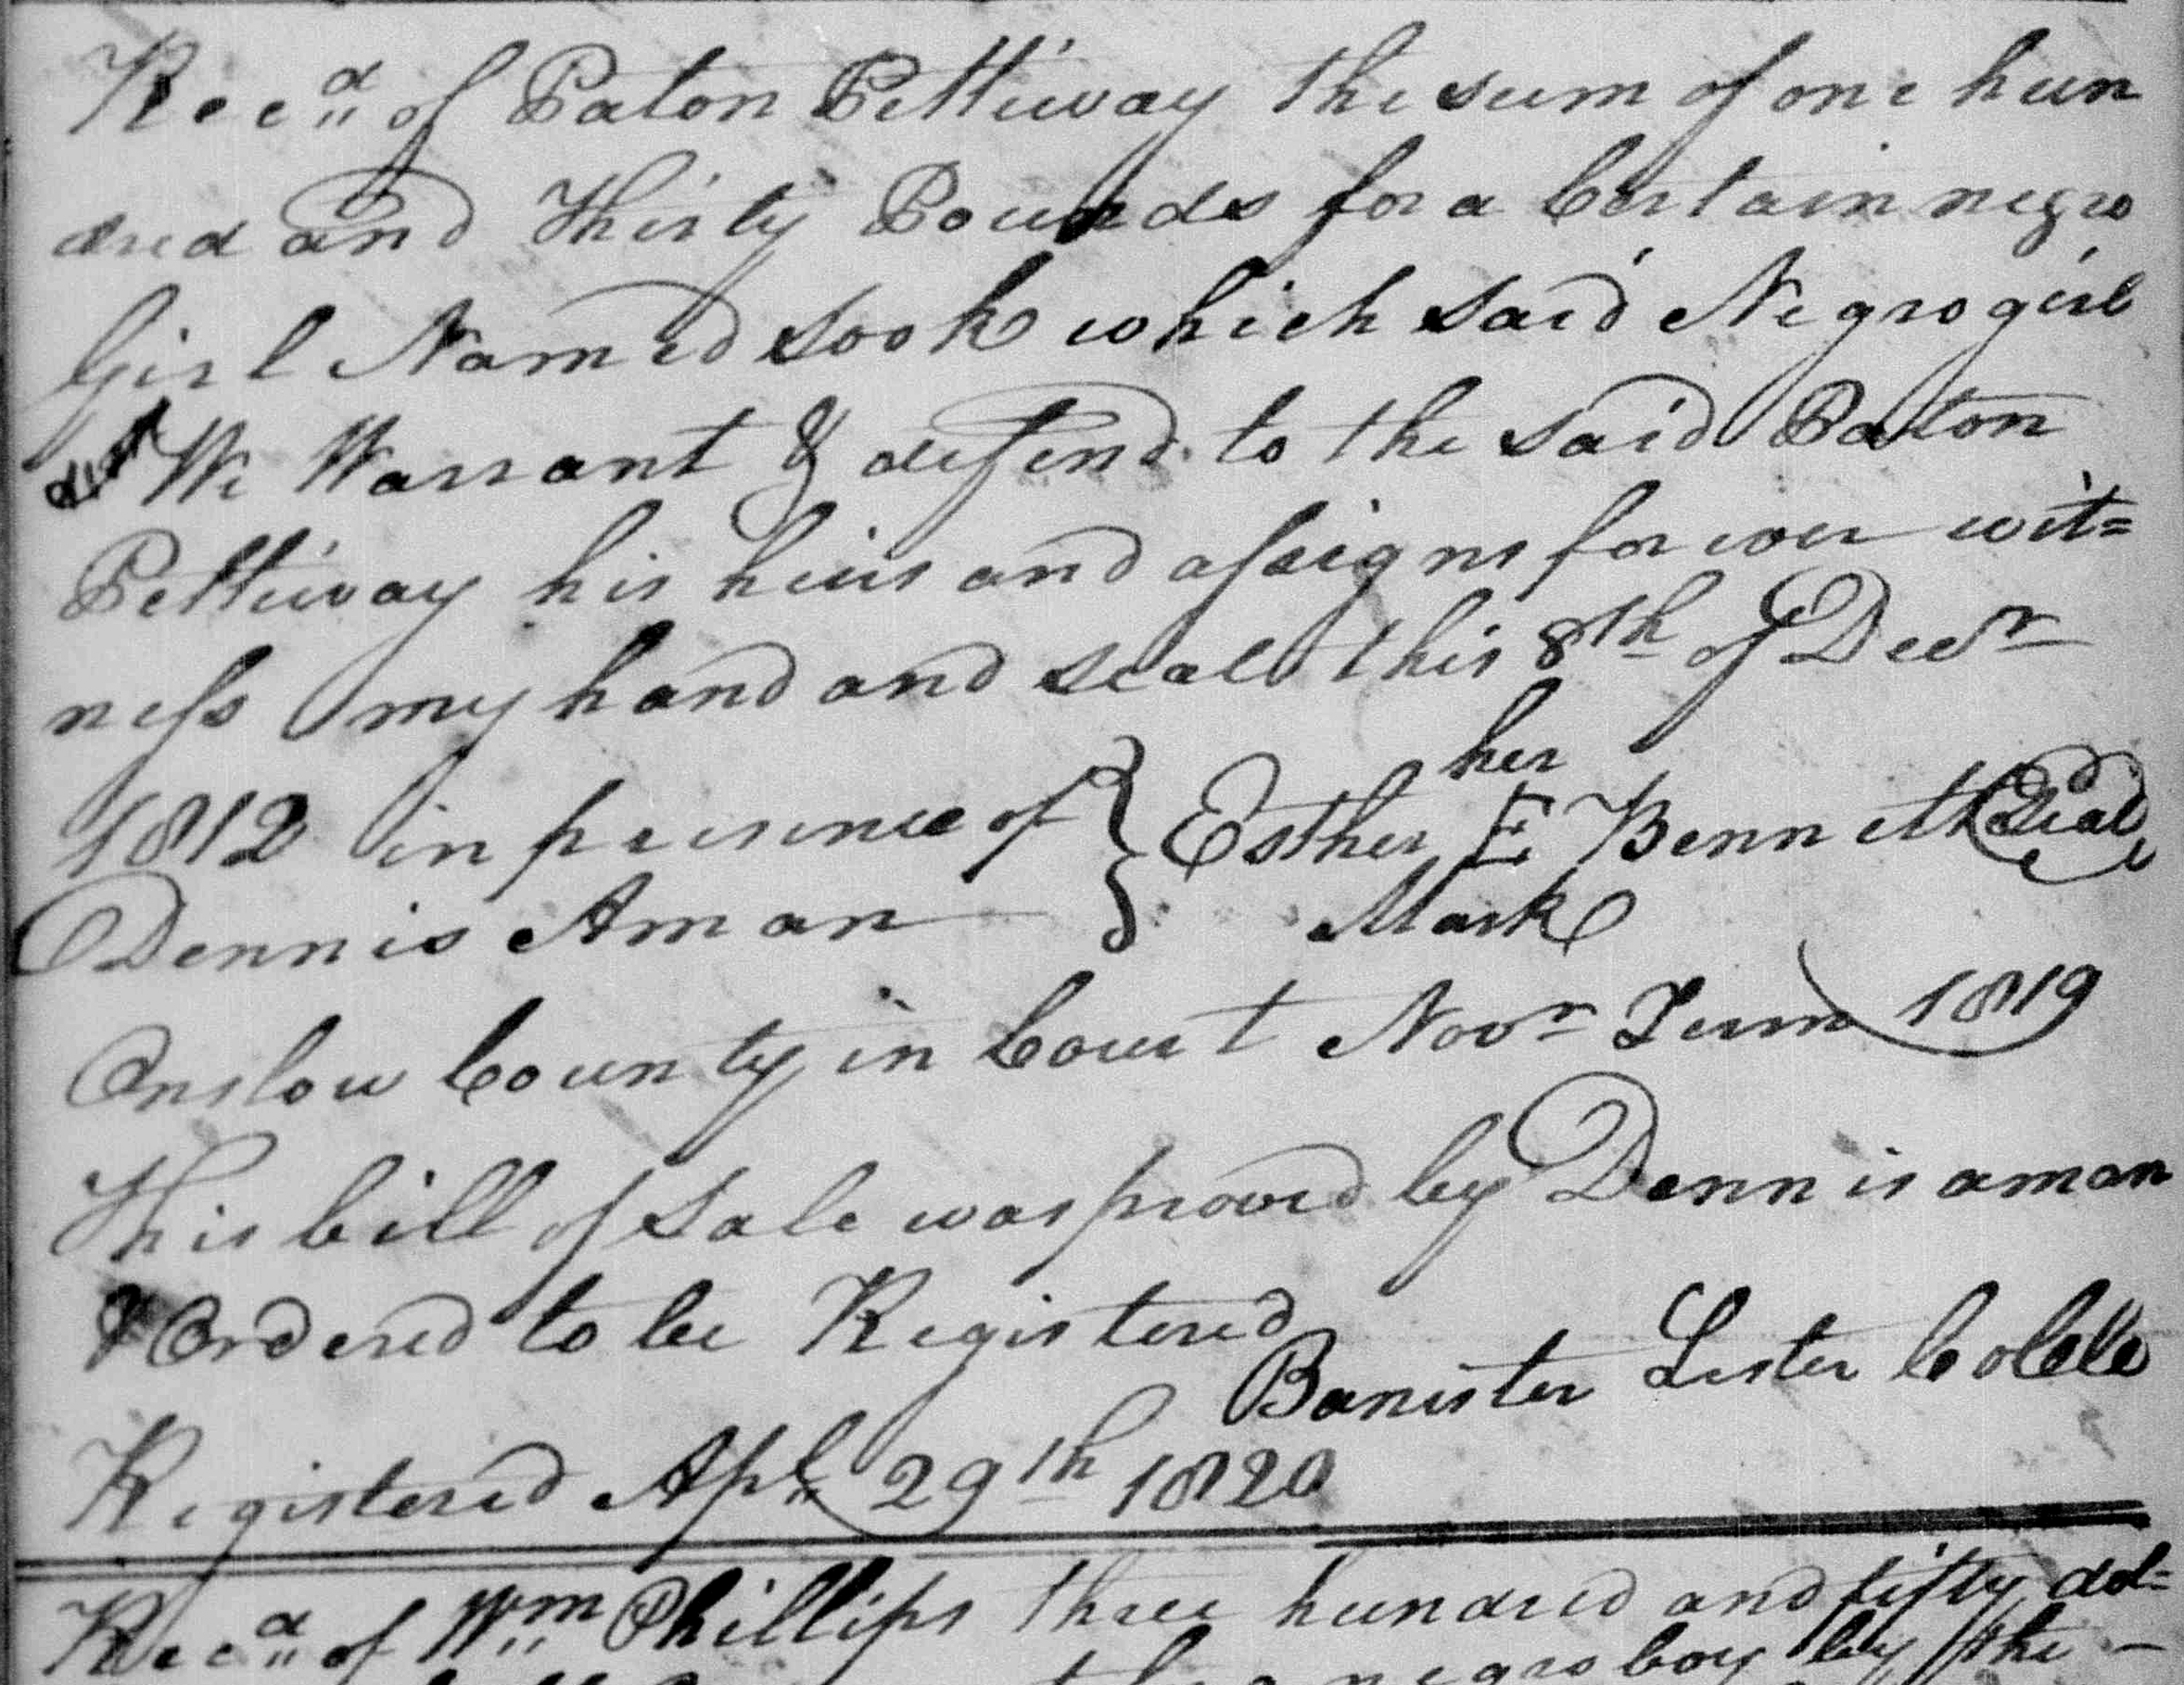 Recd of Paton Pettiway the sum of one hun
dred and Thirty Pounds for a Certain negro
Girl Named Sook which said Negro girl
We Warrant & defend to the said Paton
Pettiway his heirs and assigns for ever wit=
ness my hand and seal this 8th of Decr
her
1812 in presence of } Esther E Bennett Seal
Dennis Aman Mark
Onslow County in Court Novr Term 1819
This bill of Sale was proved by Dennis aman
& Ordered to be Registered
Banister Lester
Registered Apl 29th 1820
Recd of Wm Phillips three hundred and fifty dol=
negro boy by the